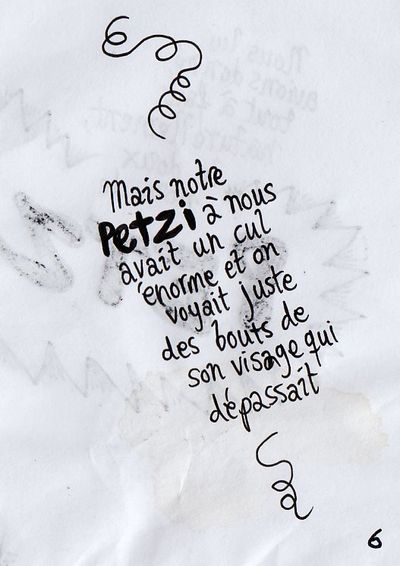 Mais notre
Petzi à nous
avait un cul
énorme et on
voyait juste
des bouts de
son visage qui
dépassait
6